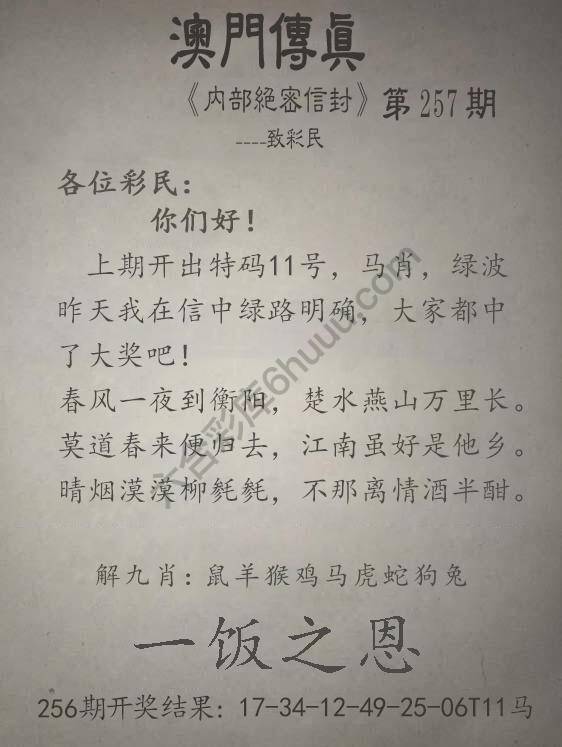 澳門傳眞
《内部絕密信封》第257期
----致彩民
各位彩民：
你们好！
上期开出特码11号，马肖，绿波
昨天我在信中绿路明确，大家都中
了大奖吧！
春风一夜到衡阳，楚水燕山万里长。
莫道春来便归去，江南虽好是他乡。
晴烟漠漠柳毵毵，不那离情酒半酣。
解九肖：鼠羊猴鸡马虎蛇狗兔
一饭之恩
256期开奖结果：17-34-12-49-25-06T11马
六合彩库6huuu.com